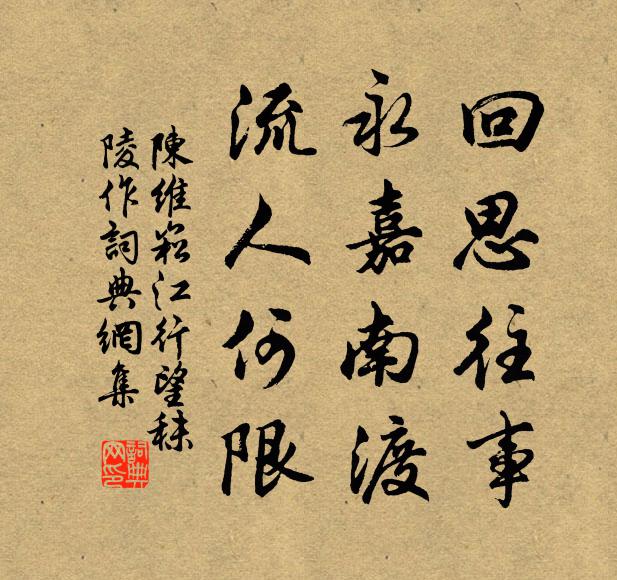 回思往事
永嘉南渡
流人何限
陳維崧江行望秣
陵作詞典網集
詞典網印